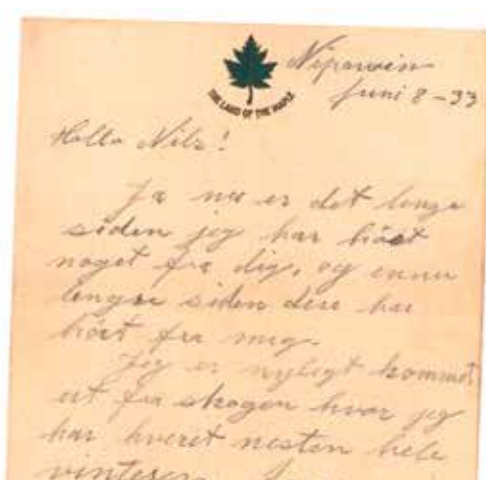 Nipawin
Juni 8-33
THE LAND OF THE MAPLE
Hallo Nils!
Ja nu er det lenge
siden jeg har hört
noget fra dig, og ennu
lengre siden dere har
hört fra mig.
Jeg er nyligt kommet
ut fra skogen hvor jeg
har hveret nesten hele
vinteren.